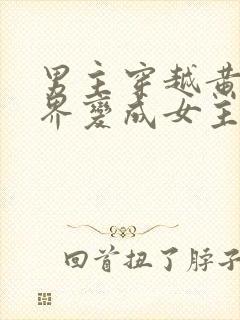 男主穿越黄
界變成女主
回首扭了脖子